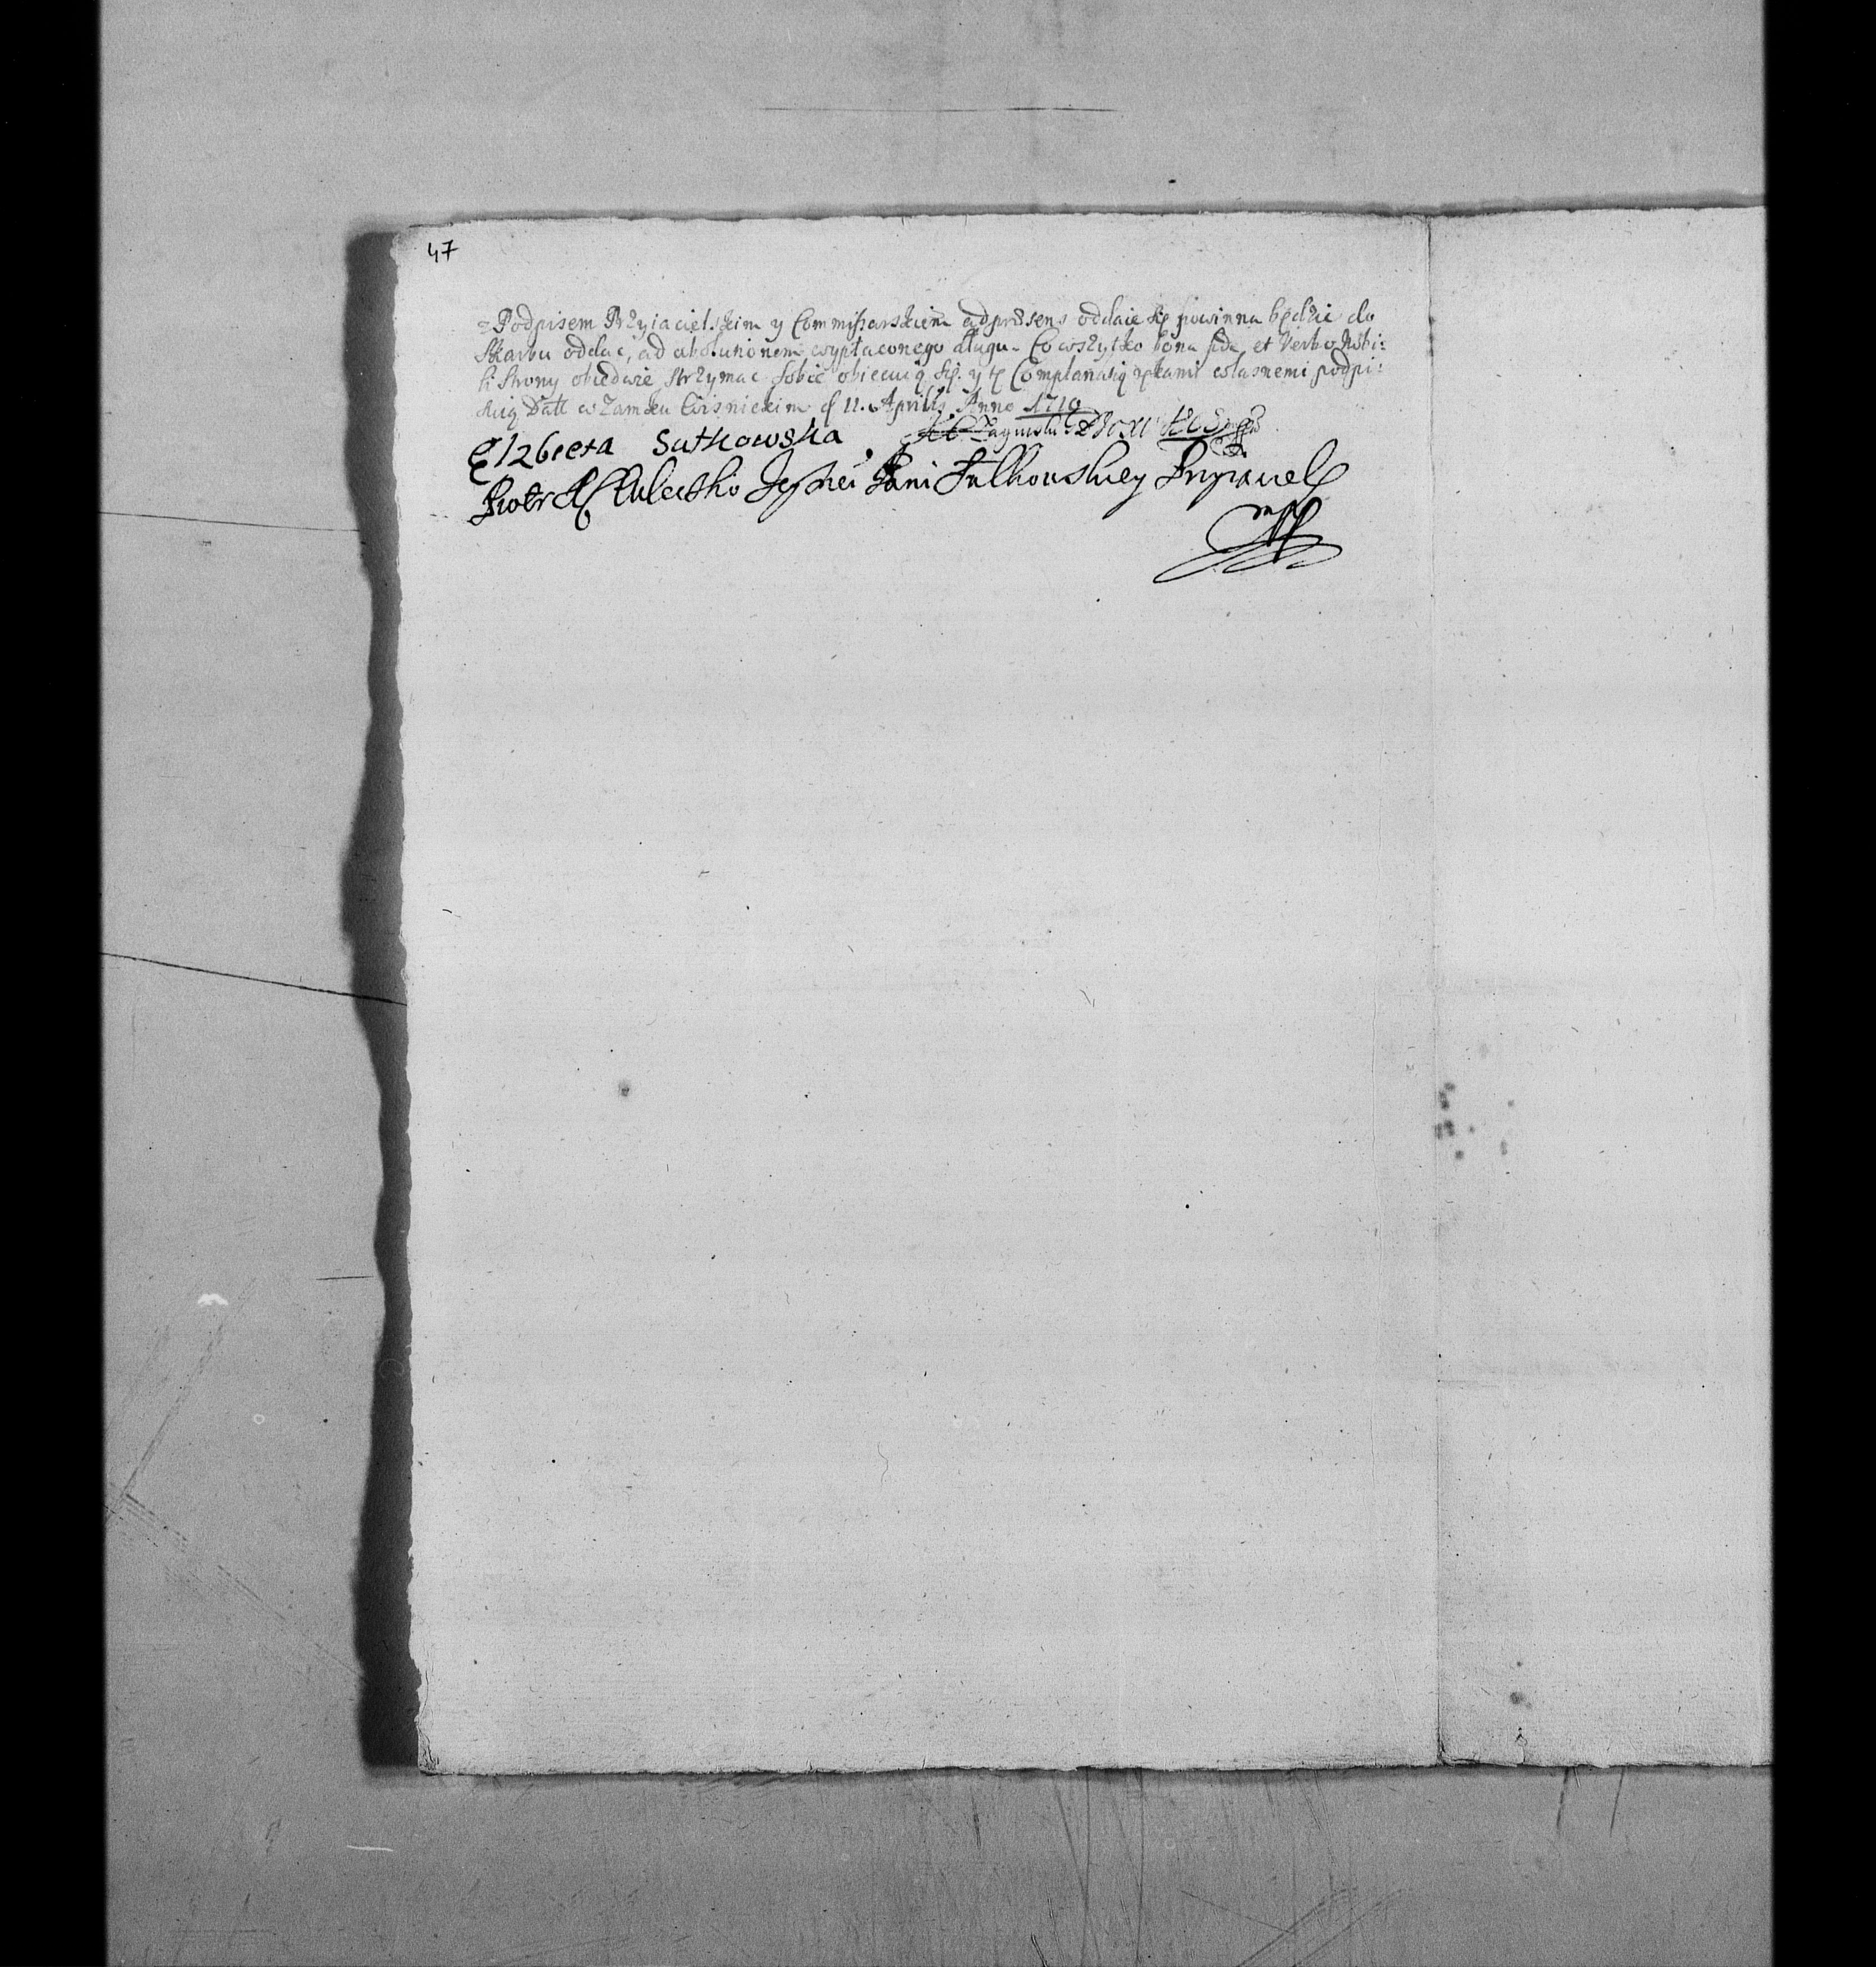 47
=Podpisem Przyiacielskim y Commissarskiem adpræsens oddaie się powinna będzie do
Skarbu oddac, ad absolutionem wypłaconego długu. Co wszytko bona fide et Verbo Nobi:
li Strony obiedwie strzymac sobie obiecuią się. y tę Complanatią rękami własnemi podpi:
suią Datt w Zamku Wisnickim d 11. Aprilis Anno 1710
Elzbieta Sutkowska
Piotr Jey Mci Pani Sulkowskiey Przyiaciel
mp